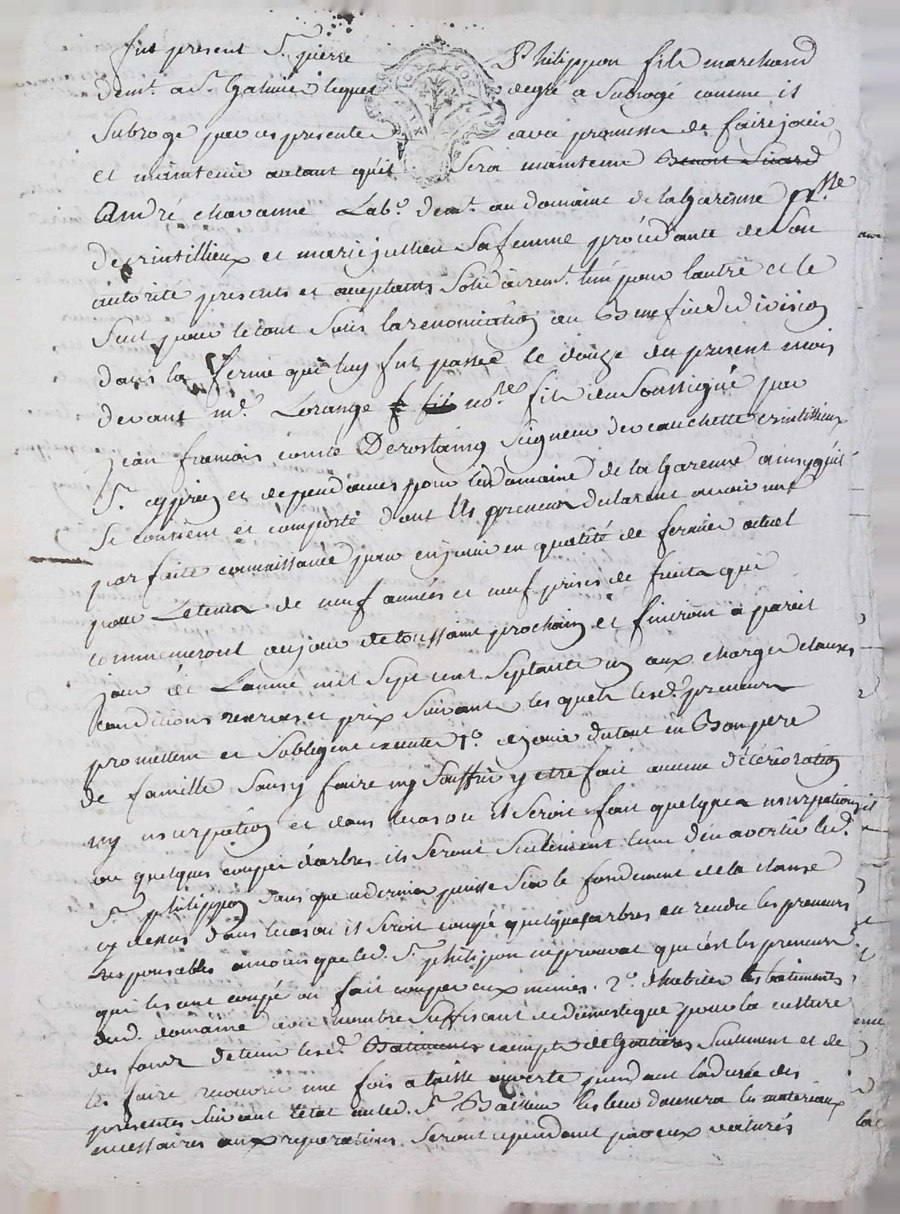 fut present Sr pierre Philippon fils marchand
demt a St Galmier lequel degré a subrogé comme il
subroge par ces presentes avec promesse de faire jouir
et maintenir autant qu'il sera maintenu Benoit Sicard
André chavanne Labr demt au domaine de la Garenne psse
de crintillieux et marie jullien sa femme procédante de son
autorité presents et acceptants solidairemt lun pour lautre et le
seul pour le tout sous la renonciation au Benefice de division
dans la ferme qui luy fut passée le douze du present mois
devant me Lorange nore fils du soussigné par
jean francois comte Derostaing seigneur de veauchette crintillieux
St cyprien et dependances pour led domaine de la Garenne ainsy quil
se contient et comporte dont les preneurs declarent avoir une
parfaite connaissance pour en jouir en qualité de fermier actuel
pour le tems de neuf années et neuf prises de fruits qui
commenceront au jour de toussaint prochain et finiront a pareil
jour de L'année mil sept cent septante un aux charges clauses
conditions reserves et prix suivants les quels lesd. preneurs
promettent et sobligent executer 1o de jouir du tout en Bon pere
de famille sans y faire ny souffrir y etre fait aucune détérioration
ny usurpation et dans le cas ou il seroit fait quelques usurpations
ou quelques coupes darbres ils seront seulement tenu den avertir led.
Sr philippon sans que ce dernier puisse sur le fondement de la clause
cy dessus dans le cas ou il seroit coupé quelques arbres en rendre les preneurs
responsables a moins que led. Sr philippon ne prouvat que c'est les preneurs
qui les ont coupé ou fait couper eux memes. 2o d'habiter les batiments
dud. domaine avec nombre suffisant de domestique pour la culture
des fonds de tenir lesd. Batiments exempts de Goutieres seulement et de
les faire recouvrir une fois a taille ouverte pendant la durée des
presentes suivant l'etat led. Sr Bailleur les leur donnera les materiaux
necessaires aux reparations seront cependant par eux voiturés